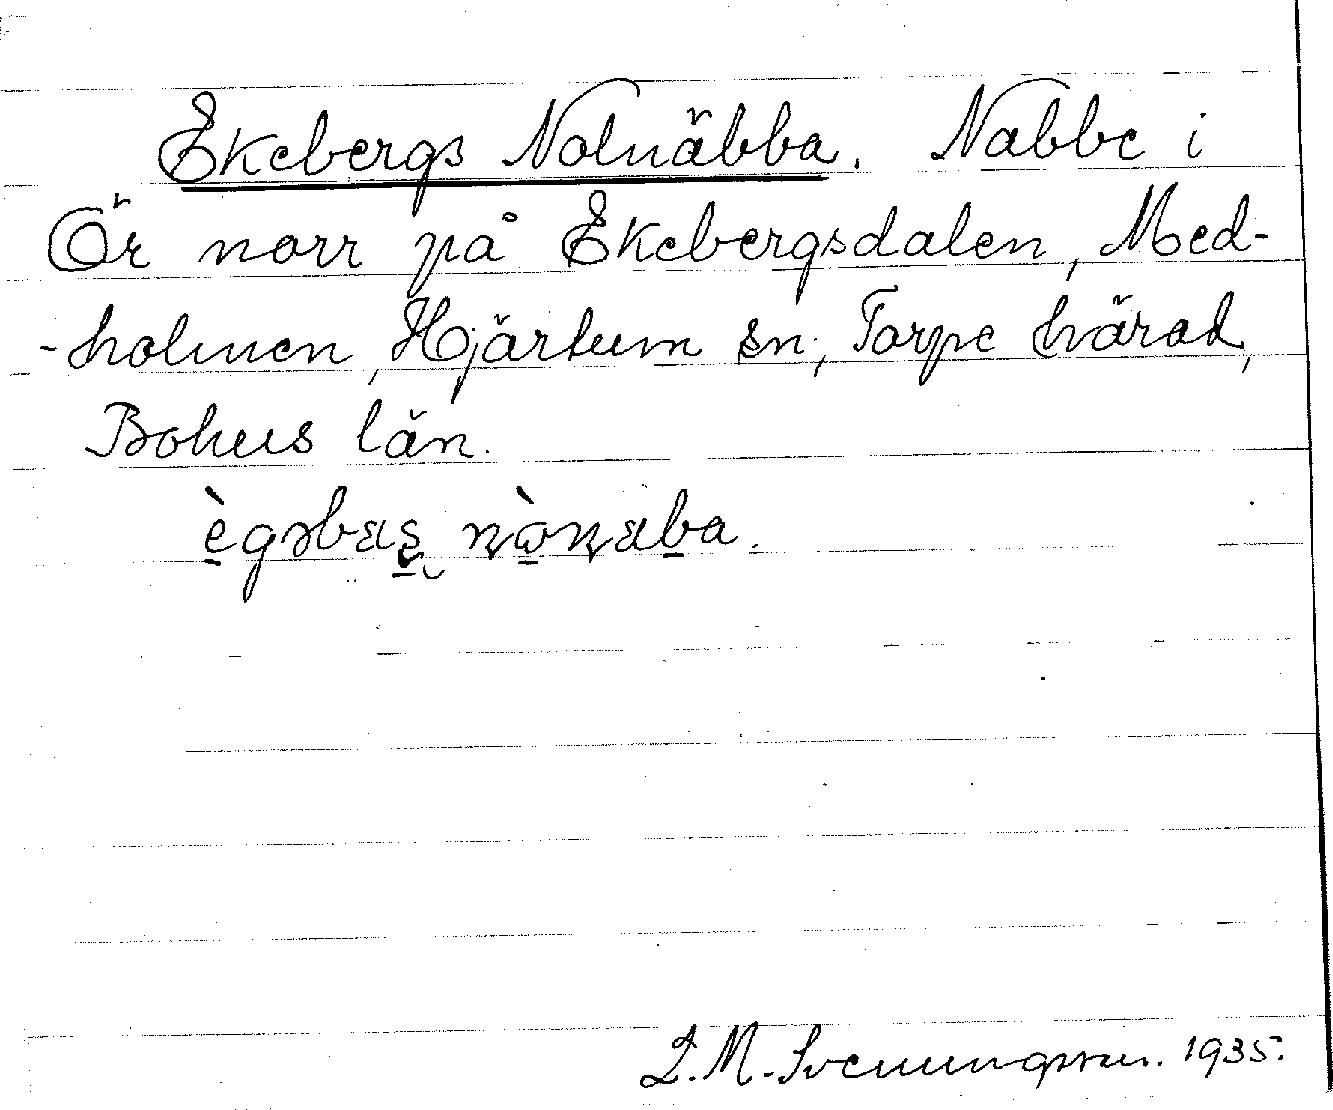 Ekebergs Nolnäbba. Nabbe i
Ör norr på Ekebergsdalen, Med-
-holmen, Hjärtum sn, Torpe härad,
Bohus län.
L.M. Svenungsson. 1935.